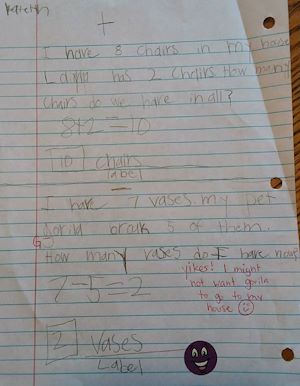 +
I have 8 chairs in my house
has 2 chairs. How many
chairs do we have in all?
8+2=10
10 chairs
label
I have 7 vases. my pet
gorila break 5 of them.
How many vases do I have now
7-5=2
yikes! I might
not want gorila
to go to my
house
2 vases
Label